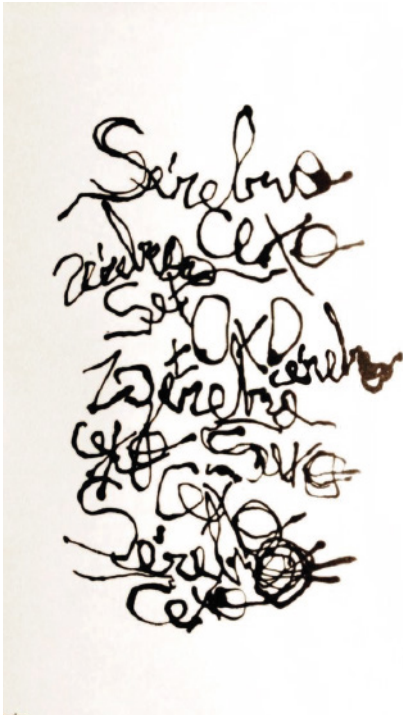 Sérebro
Cexo
zérebro
Sex
OxO
cérebro
zérebro
cexo Sexo
Cexo
Sérebro
Cexo